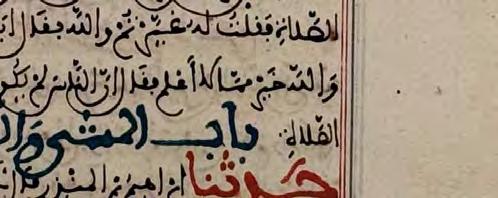 الصلاة فقلت له غيرتم والله فقال ابا
والله خير مما لا أعلم فقال إن الناس لم يكو
الصلاة باب المشي وال
حدثنا ابراهيم بن المنذر